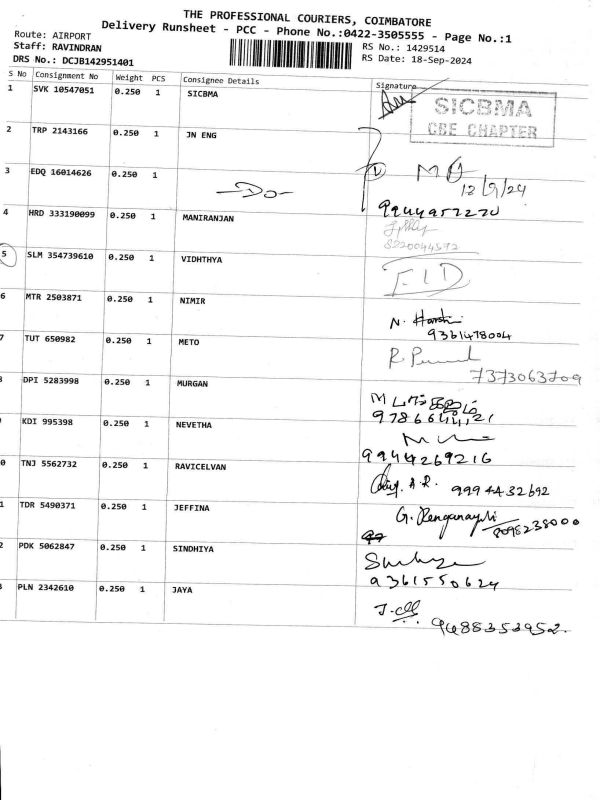 THE PROFESSIONAL COURIERS, COIMBATORE
Delivery Runsheet - PCC - Phone No.:0422-3505555 - Page No.:1
Route: AIRPORT
Staff: RAVINDRAN
RS No.: 1429514
DRS No.: DCJB142951401
RS Date: 18-Sep-2024
S No Consignment No Weight PCS Consignee Details Signature
1 SVK 10547051 0.250 1 SICBMA
SICBMA
CBE CHAPTER
2 TRP 2143166 0.250 1 JN ENG
3 EDQ 16014626 0.250 1 -Do-
4 HRD 333190099 0.250 1 MANIRANJAN
8220044572
5 SLM 354739610 0.250 1 VIDHTHYA
6 MTR 2503871 0.250 1 NIMIR N. Harsh
9361478004
7 TUT 650982 0.250 1 METO
7373063709
DPI 5283998 0.250 1 MURGAN
KDI 995398 0.250 1 NEVETHA
9944269216
0 TNJ 5562732 0.250 1 RAVICELVAN
9994432692
1 TDR 5490371 0.250 1 JEFFINA G. Renganayaki
8098238000
2 PDK 5062847 0.250 1 SINDHIYA
9361550624
PLN 2342610 0.250 1 JAYA
9488353952.